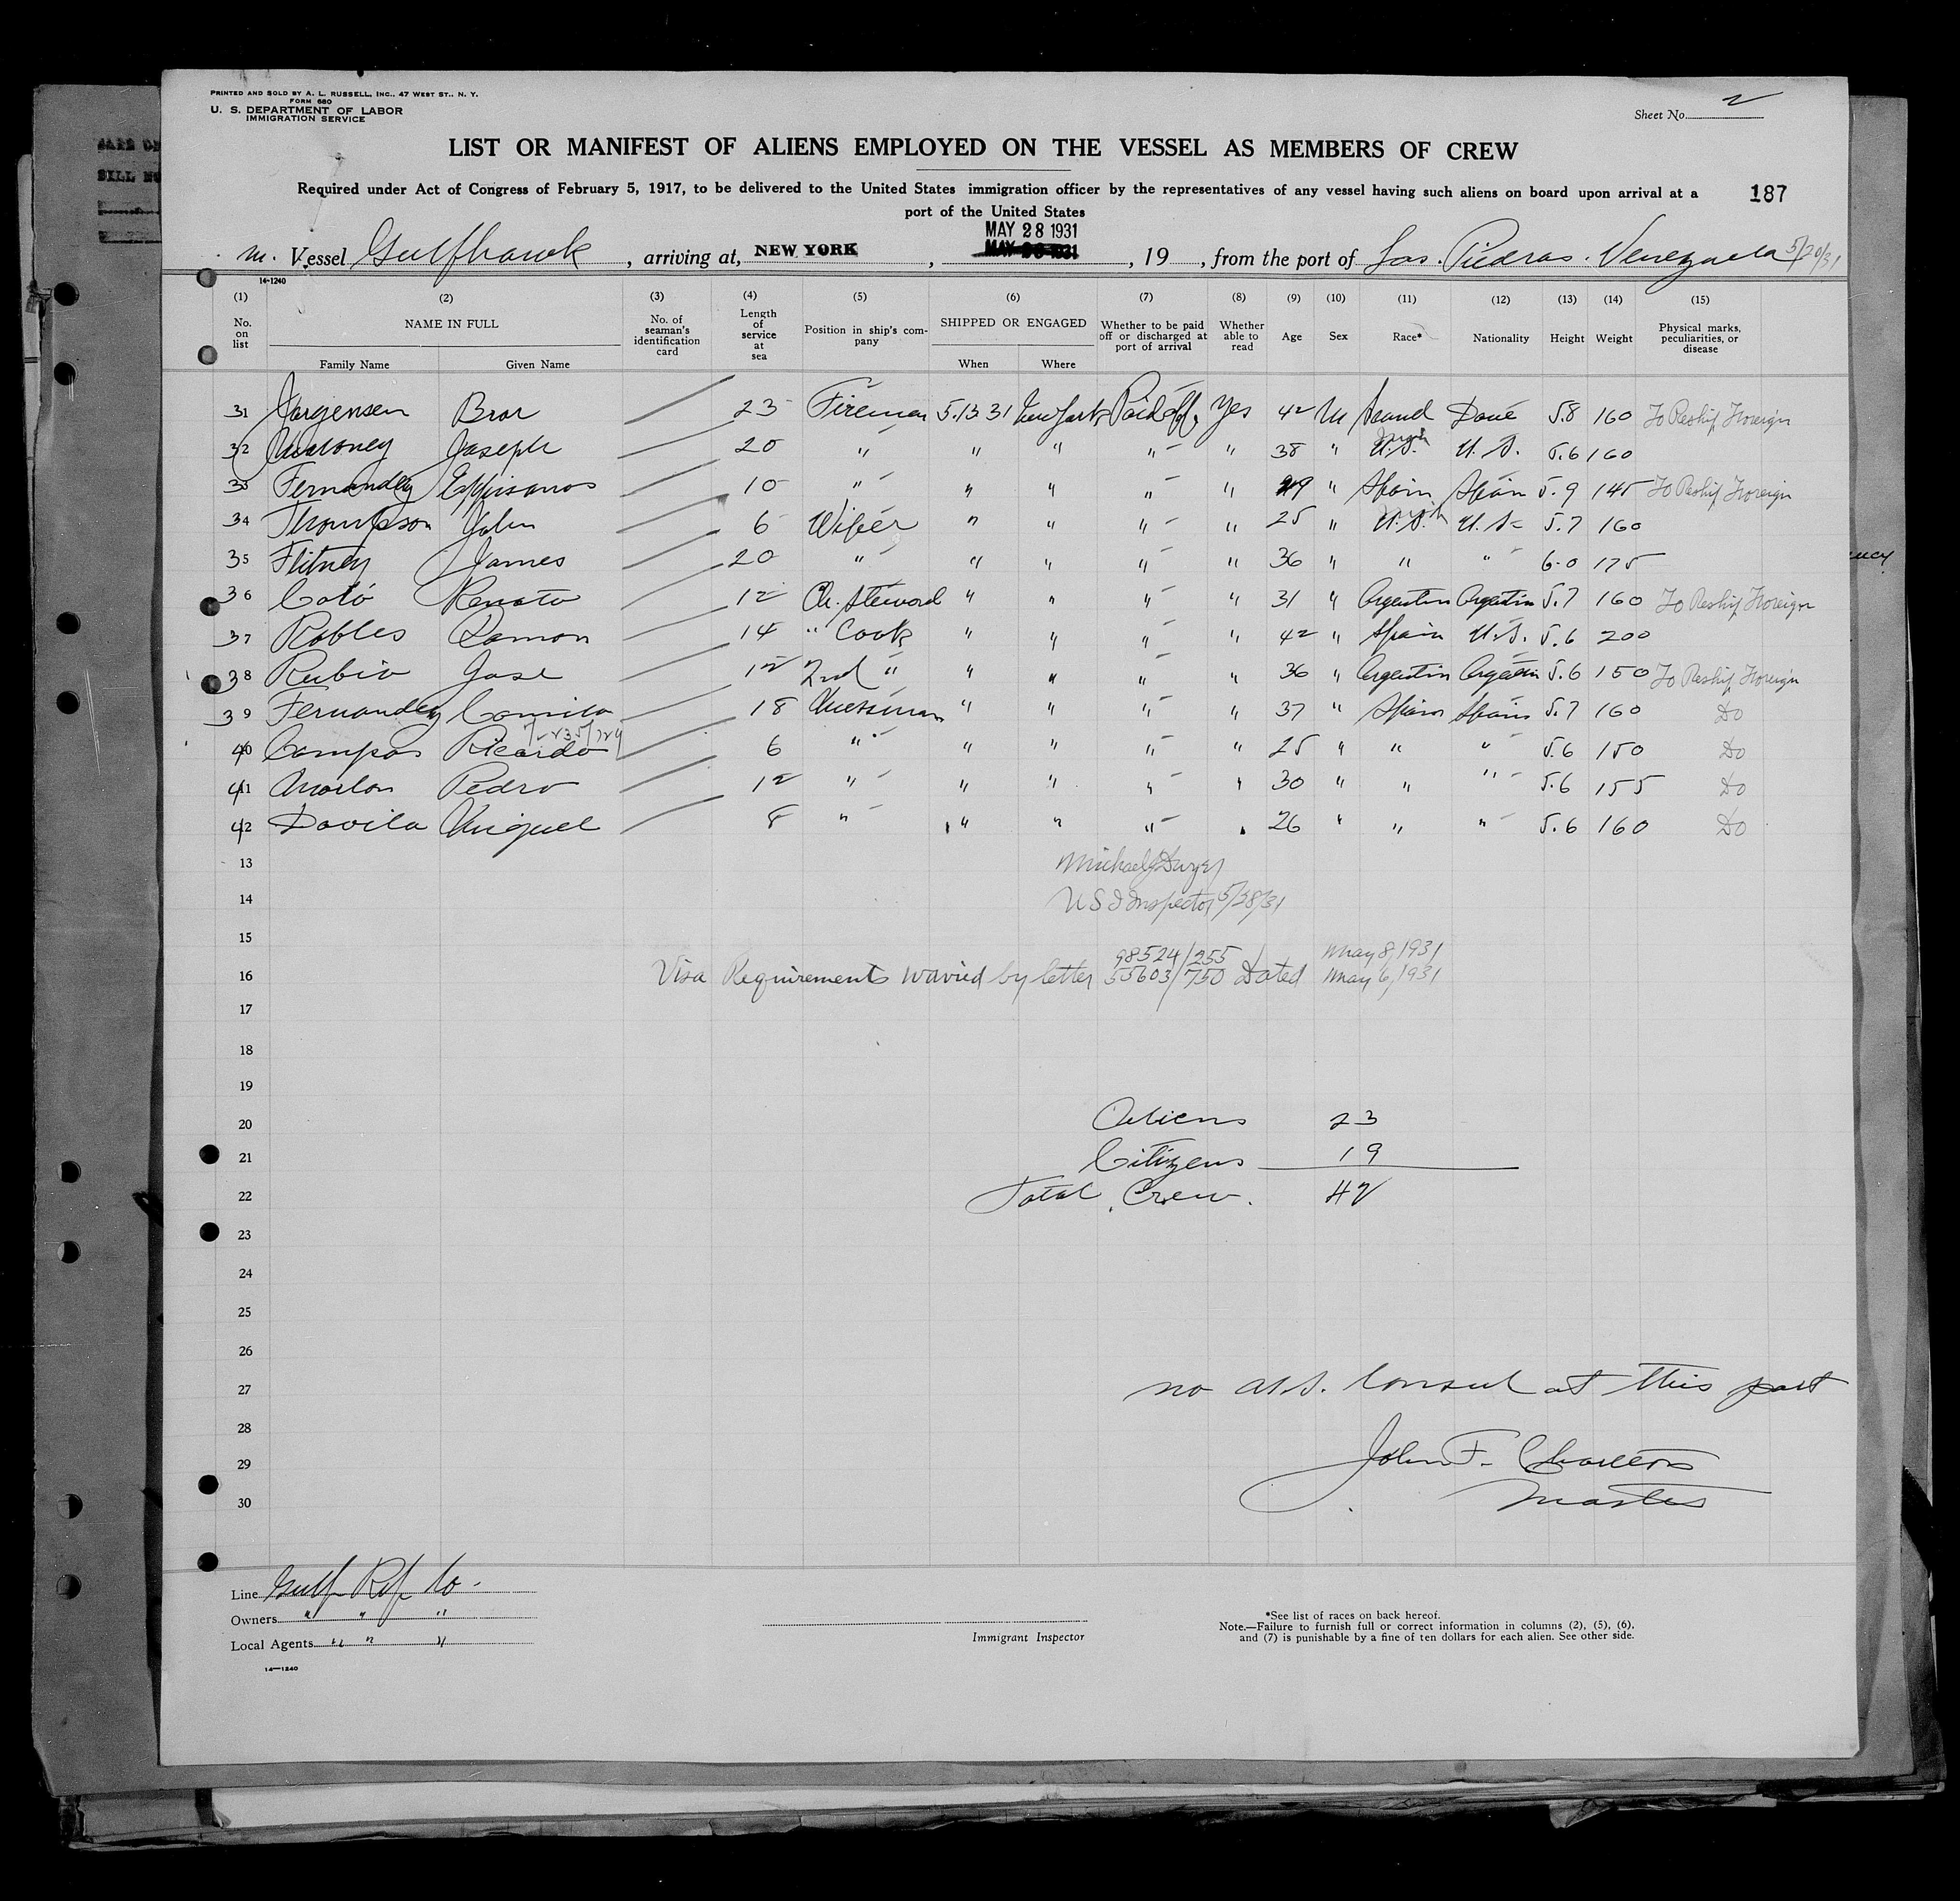 PRINTED AND SOLD BY A. L. RUSSELL, INC., 47 WEST ST., N. Y.
FORM 680
U. S. DEPARTMENT OF LABOR
IMMIGRATION SERVICE
Sheet No. 2
LIST OR MANIFEST OF ALIENS EMPLOYED ON THE VESSEL AS MEMBERS OF CREW
Required under Act of Congress of February 5, 1917, to be delivered to the United States immigration officer by the representatives of any vessel having such aliens on board upon arrival at a
port of the United States
187
MAY 28 1931
m. Vessel Gulfhawk, arriving at, NEW YORK, , 19 , from the port of Las Piedras. Venezuela 5/20/31
14-1240
(1) (2) (3) (4) (5) (6) (7) (8) (9) (10) (11) (12) (13) (14) (15)
No. on list NAME IN FULL Family Name Given Name No. of seaman's identification card Length of service at sea Position in ship's company SHIPPED OR ENGAGED When Where Whether to be paid off or discharged at port of arrival Whether able to read Age Sex Race* Nationality Height Weight Physical marks, peculiarities, or disease
31 Jorgensen Bror 23 Fireman 5.13 31 New York Paid off Yes 42 M Scand Dane 5.8 160 To Reship Foreign
32 Maloney Joseph 20 " " " " " 38 " U.S. U.S. 5.6 160
33 Fernandez 10 " " " " " 29 " Spain Spain 5.9 145 To Reship Foreign
34 Thompson John 6 Wiper " " " " 25 " U.S. U.S. 5.7 160
35 Flitney James 20 " " " " " 36 " " " 6-0 175
36 Coto Renato 12 Ch. Steward " " " " 31 " Argentin Argentin 5.7 160 To Reship Foreign
37 Robles Ramon 14 " Cook " " " " 42 " Spain U.S. 5.6 200
38 Rubio Jose 12 2nd " " " " " 36 " Argentin Argentin 5.6 150 To Reship Foreign
39 Fernandez Camilo 18 Messman " " " " 37 " Spain Spain 5.7 160 Do
40 Campos Ricardo 6 " " " " " 25 " " " 5.6 150 Do
41 Pedro 12 " " " " " 30 " " " 5.6 155 Do
42 Davila Miguel 8 " " " " " 26 " " " 5.6 160 Do
13 Michael J Dwyer
14 U S I Inspector 5/28/31
15 98524/255 May 8, 1931
16 Visa Requirements wavied by letter 55603/750 Dated May 6, 1931
17
18
19
20 Aliens 23
21 Citizens 19
22 Total Crew. 42
23
24
25
26
27 no U.S. Consul at this port
28
29 John F. Charlton
30 Master
Line Gulf Ref Co.
Owners " " "
Local Agents " " "
14-1240
Immigrant Inspector
*See list of races on back hereof.
Note.—Failure to furnish full or correct information in columns (2), (5), (6),
and (7) is punishable by a fine of ten dollars for each alien. See other side.